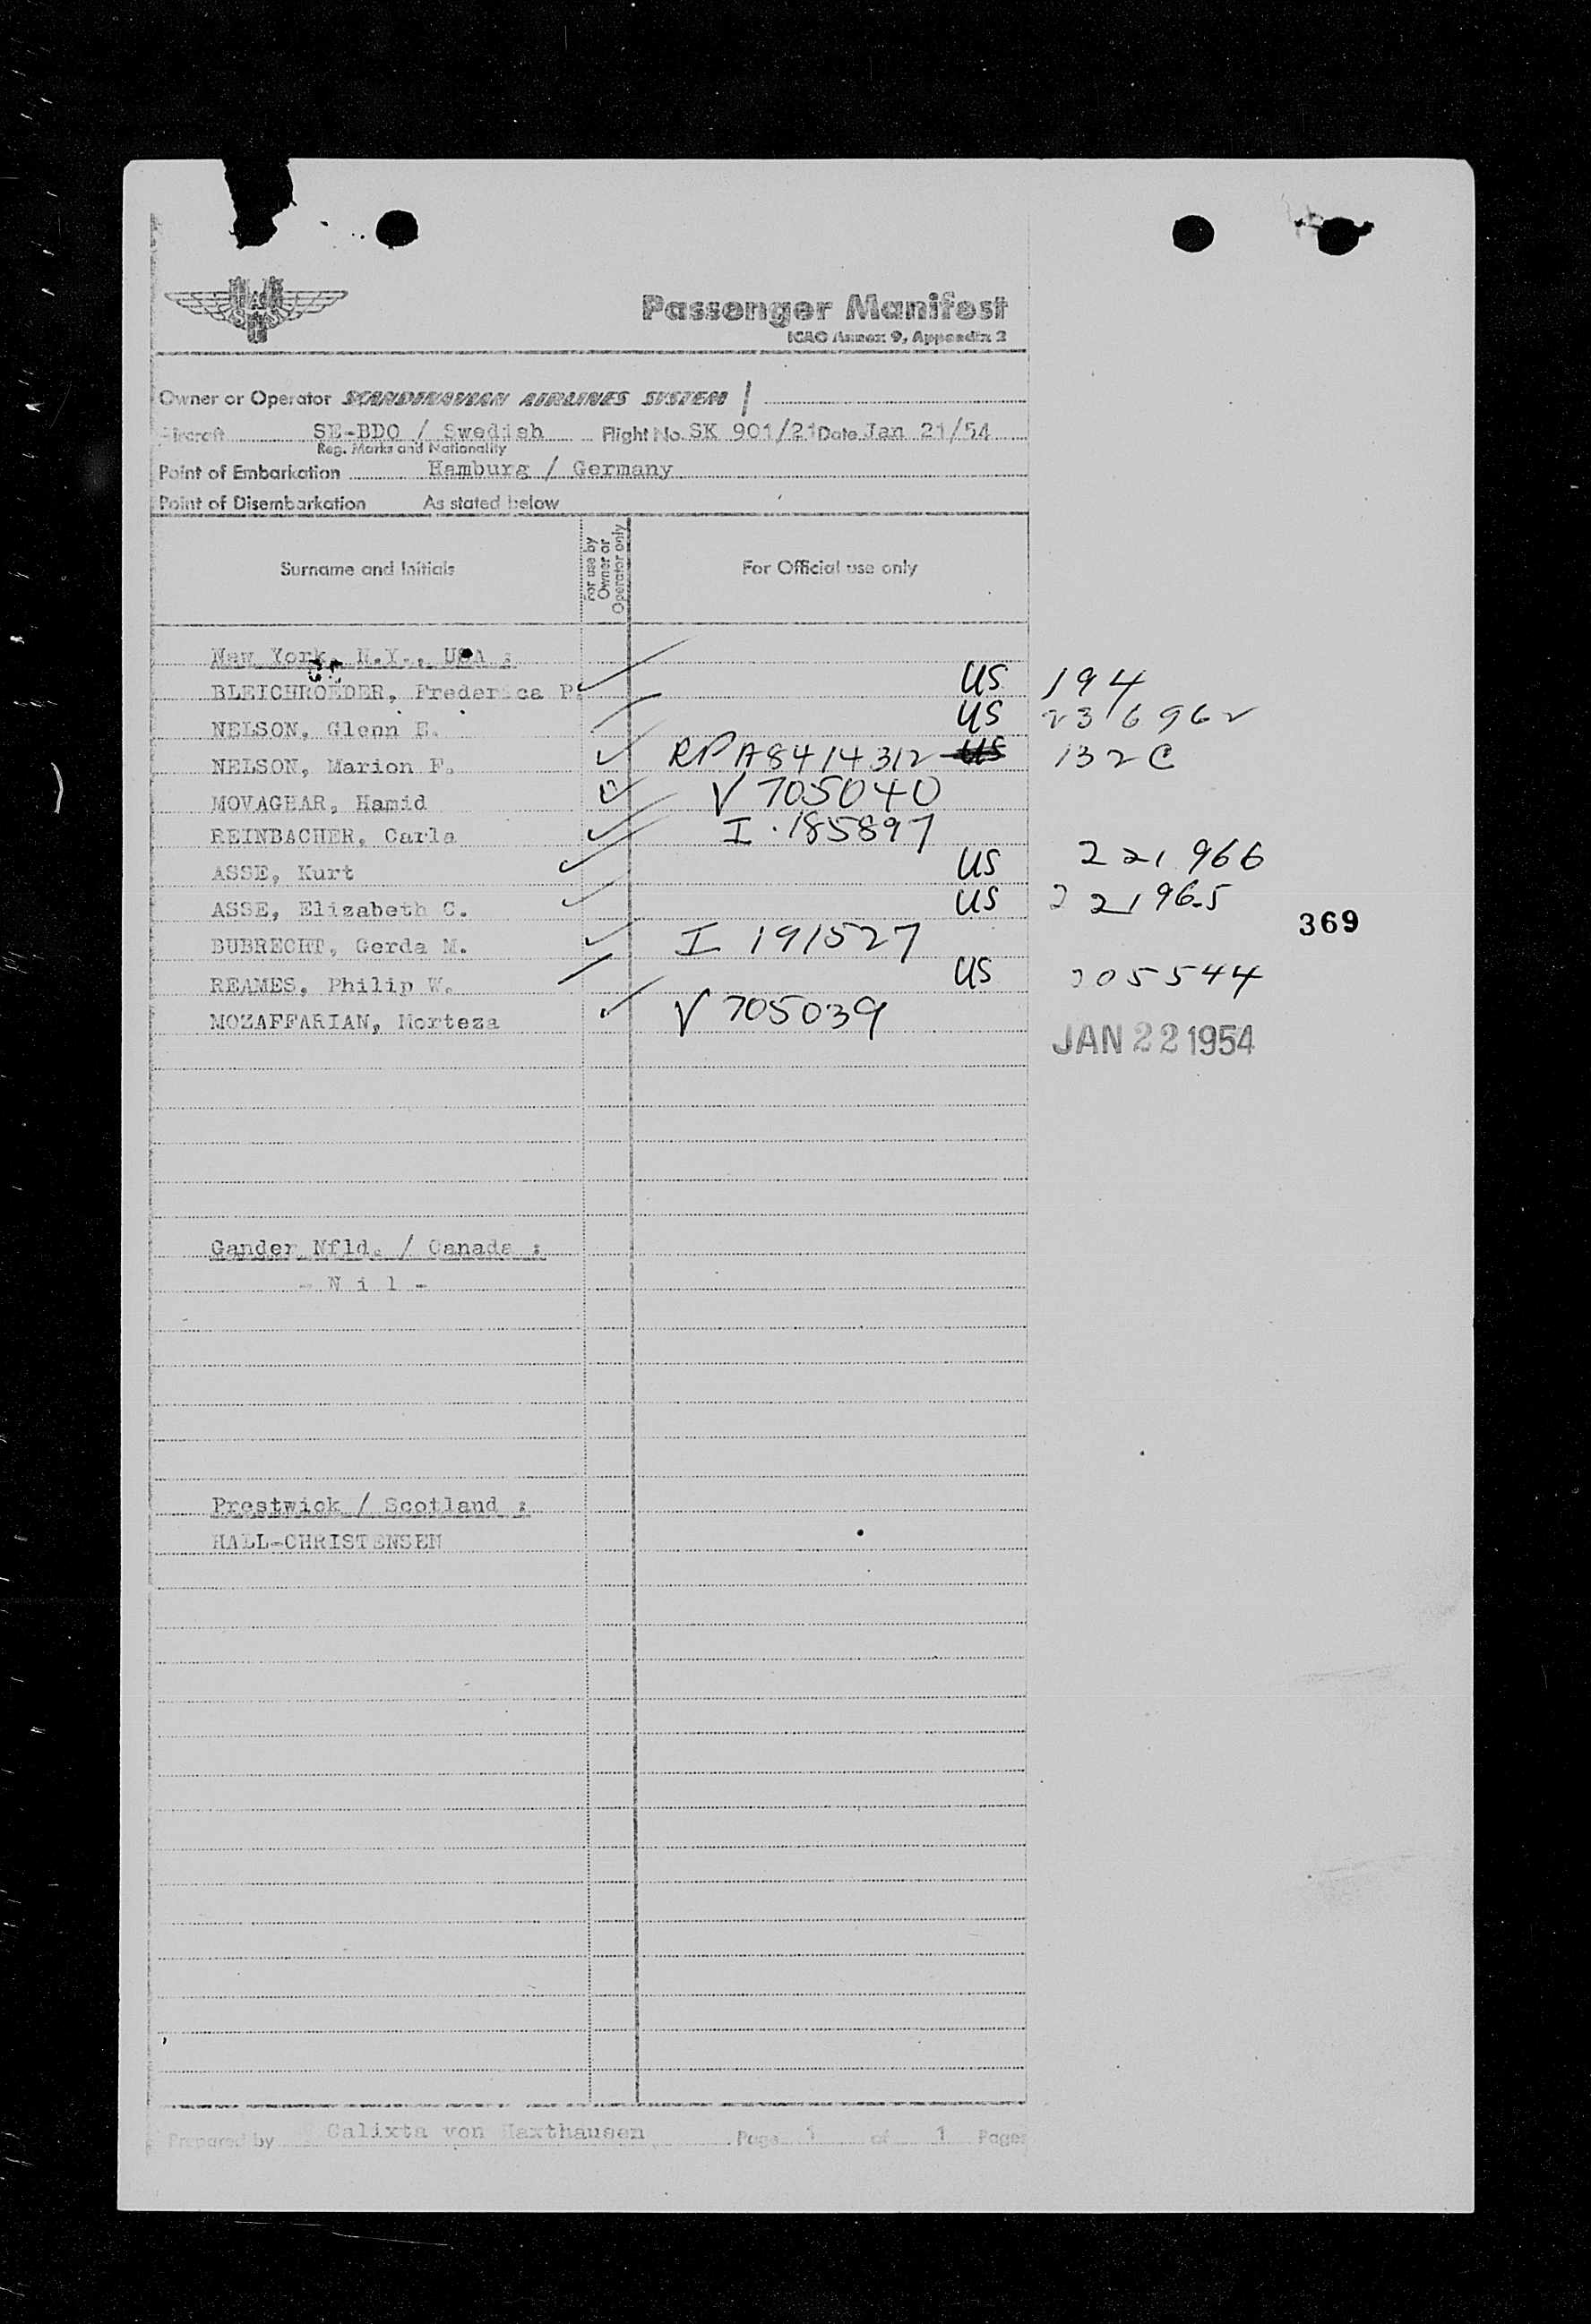 SAS
Passenger Manifest
ICAO Annex 9, Appendix 2
Owner or Operator SCANDINAVIAN AIRLINES SYSTEM /
Aircraft SE-BDO / Swedish Flight No. SK 901/21 Date Jan 21/54
Reg. Marks and Nationality
Point of Embarkation Hamburg / Germany
Point of Disembarkation As stated below
Surname and Initials For use by Owner or Operator only For Official use only
New York, N.Y., USA :
BLEICHROEDER, Frederica P. US 194
NELSON, Glenn E. US 236962
NELSON, Marion F. RP A8414312 US 132C
MOVAGHAR, Hamid V 705040
REINBACHER, Carla I.185897
ASSE, Kurt US 221966
ASSE, Elizabeth C. US 221965
369
BUBRECHT, Gerda M. I 191527
REAMES, Philip W. US 205544
MOZAFFARIAN, Morteza V 705039
JAN 22 1954
Gander Nfld. / Canada :
- N i l -
Prestwick / Scotland :
HALL-CHRISTENSEN
Prepared by Calixta von Haxthausen Page 1 of 1 Pages